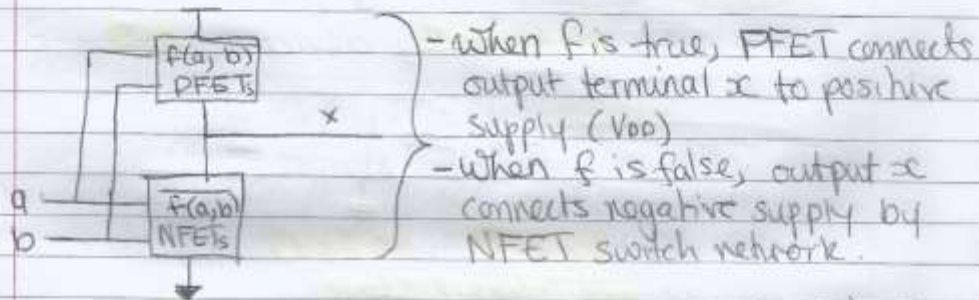 f(a, b)
PFETs
x
a
b
f(a,b)
NFETs
- when f is true, PFET connects
output terminal x to positive
supply (VDD)
- When f is false, output x
connects negative supply by
NFET switch network.